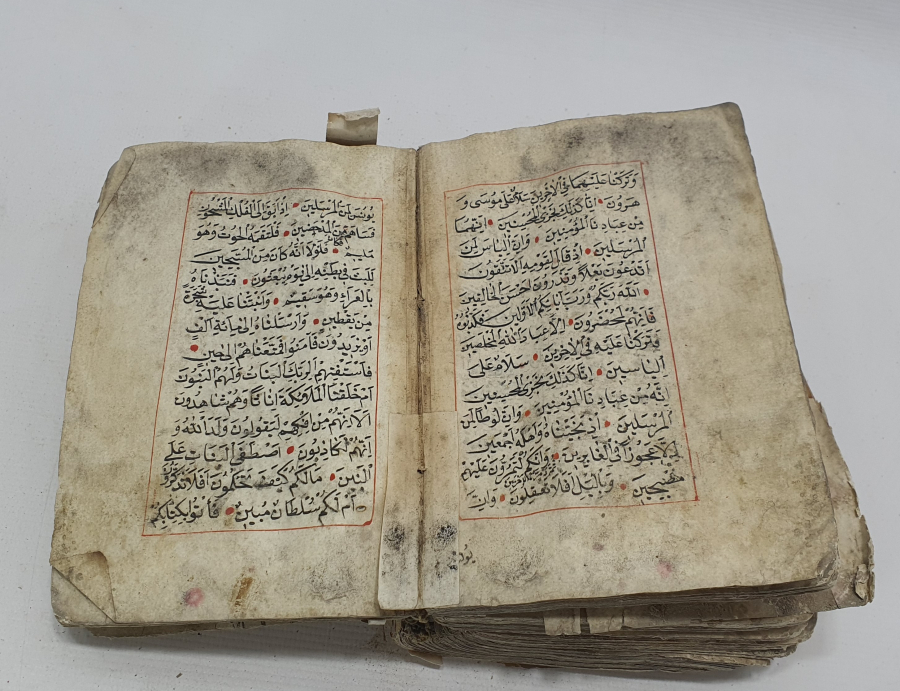 وتركنا عليهما في الاخرين سلام على موسى و
هرون انا كذلك نجزي المحسنين انهما
من عبادنا المؤمنين وان الياس لمن
المرسلين اذ قال لقومه الا تتقون
اتدعون بعلا وتذرون احسن الخالقين
الله ربكم ورب ابائكم الاولين فكذبوه
فانهم لمحضرون الا عباد الله المخلصين
وتركنا عليه في الاخرين سلام على
الياسين انا كذلك نجزي المحسنين
انه من عبادنا المؤمنين وان لوطا لمن
المرسلين اذ نجيناه واهله اجمعين
الا عجوزا في الغابرين وانكم لتمرون عليهم
مصبحين وبالليل افلا تعقلون وان
يونس لمن المرسلين اذ ابق الى الفلك المشحون
فساهم فكان من المدحضين فالتقمه الحوت وهو
مليم فلولا انه كان من المسبحين
للبث في بطنه الى يوم يبعثون فنبذناه
بالعراء وهو سقيم وانبتنا عليه شجرة
من يقطين وارسلناه الى مائة الف
او يزيدون فامنوا فمتعناهم الى حين
فاستفتهم الربك البنات ولهم البنون
ام خلقنا الملائكة اناثا وهم شاهدون
الا انهم من افكهم ليقولون ولد الله و
انهم لكاذبون اصطفى البنات على
البنين مالكم كيف تحكمون افلا تذكرون
ام لكم سلطان مبين فأتوا بكتابكم